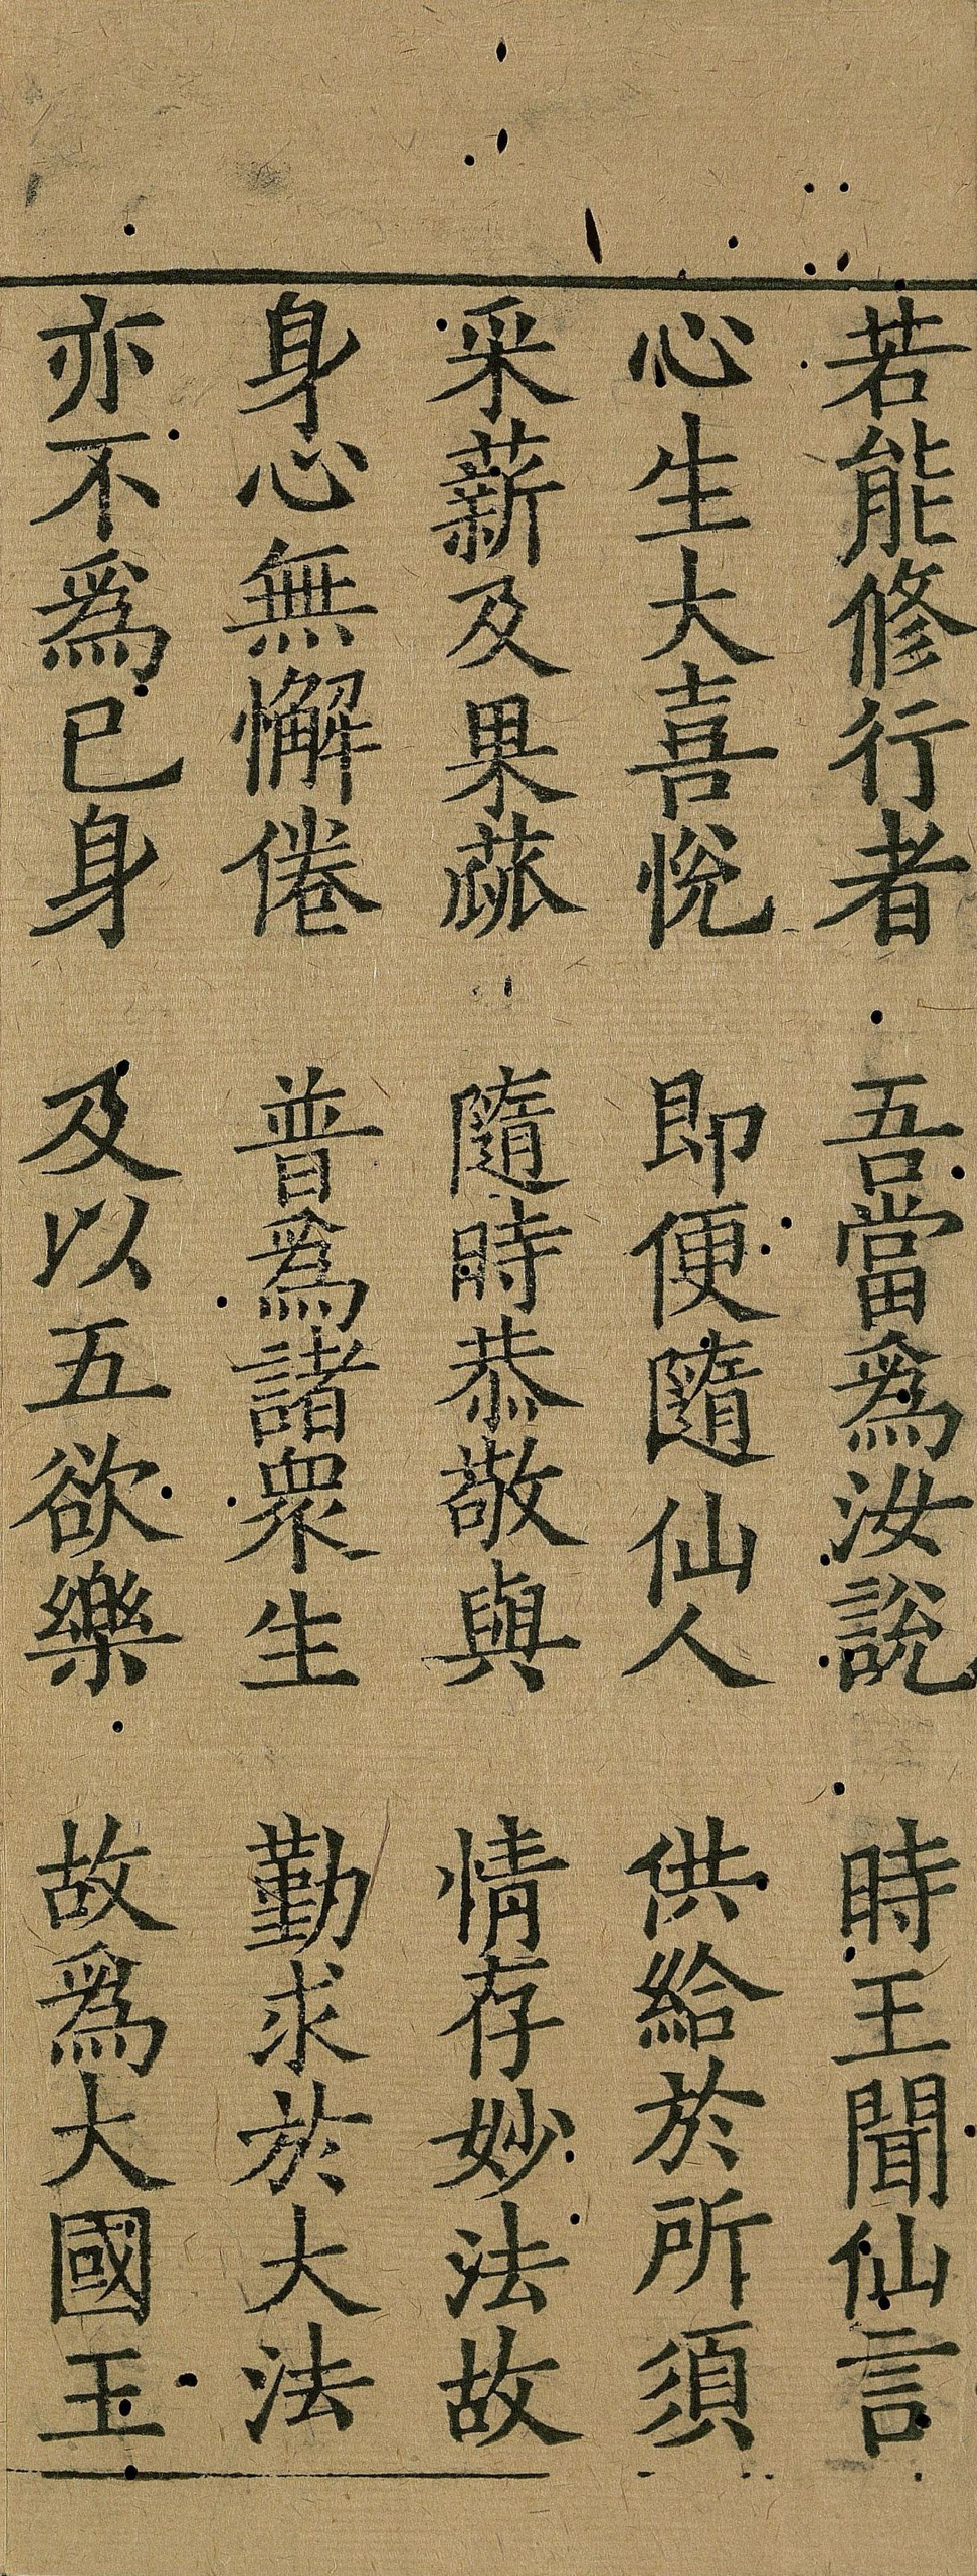 若能修行者　吾當爲汝説　時王聞仙言
心生大喜恱　即便隨仙人　供給於所須
采薪及果蓏　隨時恭敬與　情存妙法故
身心無懈倦　普爲諸衆生　勤求於大法
亦不爲已身　及以五欲樂　故爲大國王